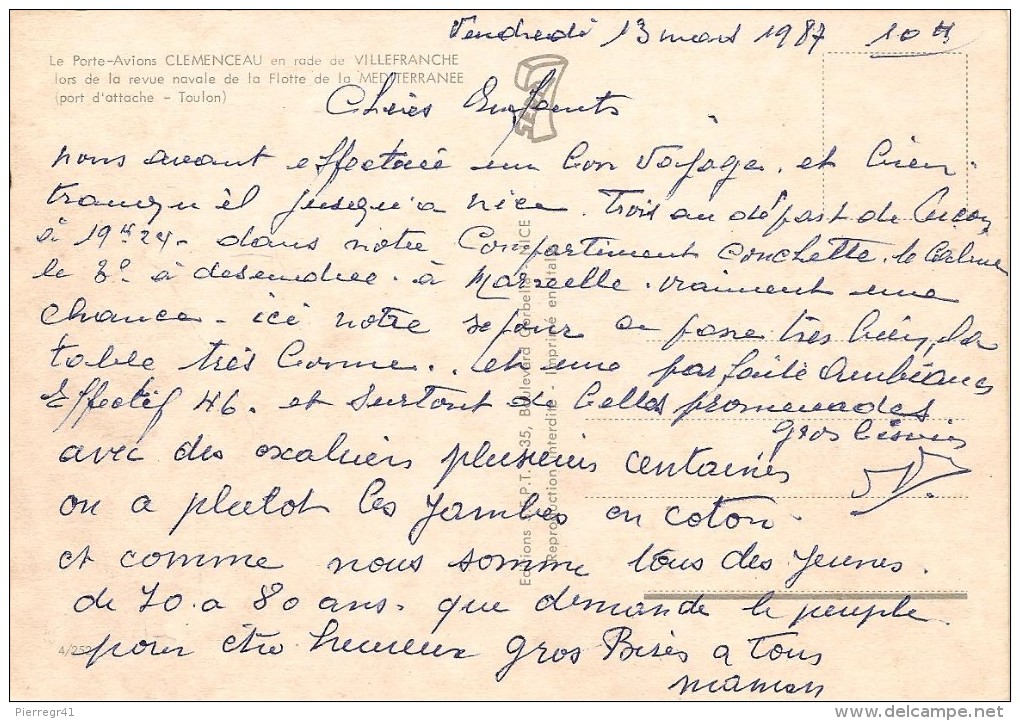 Vendredi 13 mars 1987 10H
Le Porte-Avions CLEMENCEAU en rade de VILLEFRANCHE
lors de la revue navale de la Flotte de la MEDITERRANEE
(port d'attache - Toulon)
Chères Enfants
nous avant effectuée un bon Voyage. et bien
tranqu'èl jusqu'a nice. Trois au départ de
à 19H24. dans notre Compartiment Couchette. le Calme
le 3° à desendre. à Marseille. vraiment une
chance. ici notre séjour se passe très bien, la
table très bonne.. et une parfaite Ambiance
Effectif 46. et surtout de belles promenades
avec des excaliers plusieurs centaines
on a plutot les Jambes en coton.
et comme nous somme tous des jeunes.
de 70 a 80 ans. que demande le peuple
pour être heureux gros Bises a tous
maman
gros bisous
Editions S.E.P.T. 35, Boulevard Gorbella - NICE
Reproduction interdite - Imprimé en Italie
4/252
Pierregr41
delcampe.net